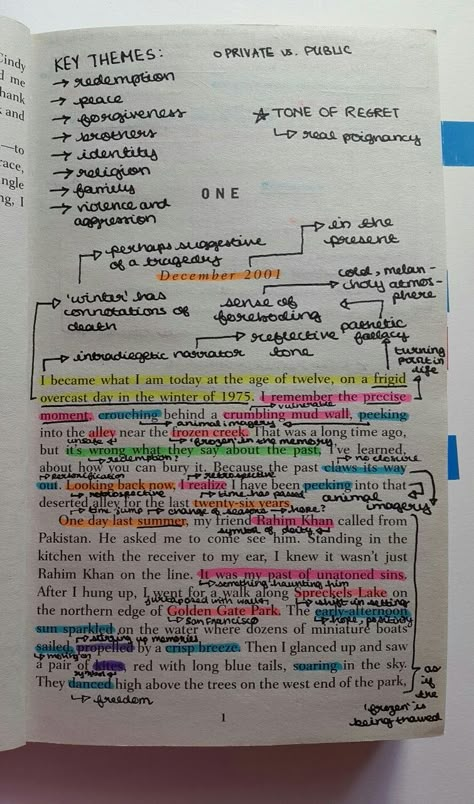 Cindy
d me
hank
k and
—to
race,
ngle
ng, I
KEY THEMES:
→ redemption
→ peace
→ forgiveness
→ brothers
→ identity
→ religion
→ family
→ violence and
aggression
○ PRIVATE vs. PUBLIC
☆ TONE OF REGRET
↳ real poignancy
ONE
→ perhaps suggestive
of a tragedy
→ in the
present
December 2001
→ 'winter' has
connotations of
death
sense of
foreboding
cold, melan-
choly atmos-
phere
→ reflective
tone
pathetic
fallacy
→ intradiegetic narrator
turning
point in
life
I became what I am today at the age of twelve, on a frigid
overcast day in the winter of 1975. I remember the precise
vulnerable
moment, crouching behind a crumbling mud wall, peeking
→ animal imagery
into the alley near the frozen creek. That was a long time ago,
unsafe
↳ frozen in the memory
but it's wrong what they say about the past, I've learned,
↳ redemption?
↳ no closure
about how you can bury it. Because the past claws its way
↳ personification
↳ retrospective
out. Looking back now, I realize I have been peeking into that
↳ retrospective
↳ time has passed
animal
imagery
deserted alley for the last twenty-six years.
↳ time jump
↳ hope?
One day last summer, my friend Rahim Khan called from
symbol of deity
Pakistan. He asked me to come see him. Standing in the
kitchen with the receiver to my ear, I knew it wasn't just
Rahim Khan on the line. It was my past of unatoned sins.
↳ something haunting him
After I hung up, I went for a walk along Spreckels Lake on
juxtaposed with
↳ shift in setting
the northern edge of Golden Gate Park. The early-afternoon
↳ San Francisco
↳ hope, positivity
sun sparkled on the water where dozens of miniature boats
↳ stirring up memories
sailed, propelled by a crisp breeze. Then I glanced up and saw
a pair of kites, red with long blue tails, soaring in the sky.
They danced high above the trees on the west end of the park,
↳ freedom
→ as
if
the
'frozen' is
being thawed
1